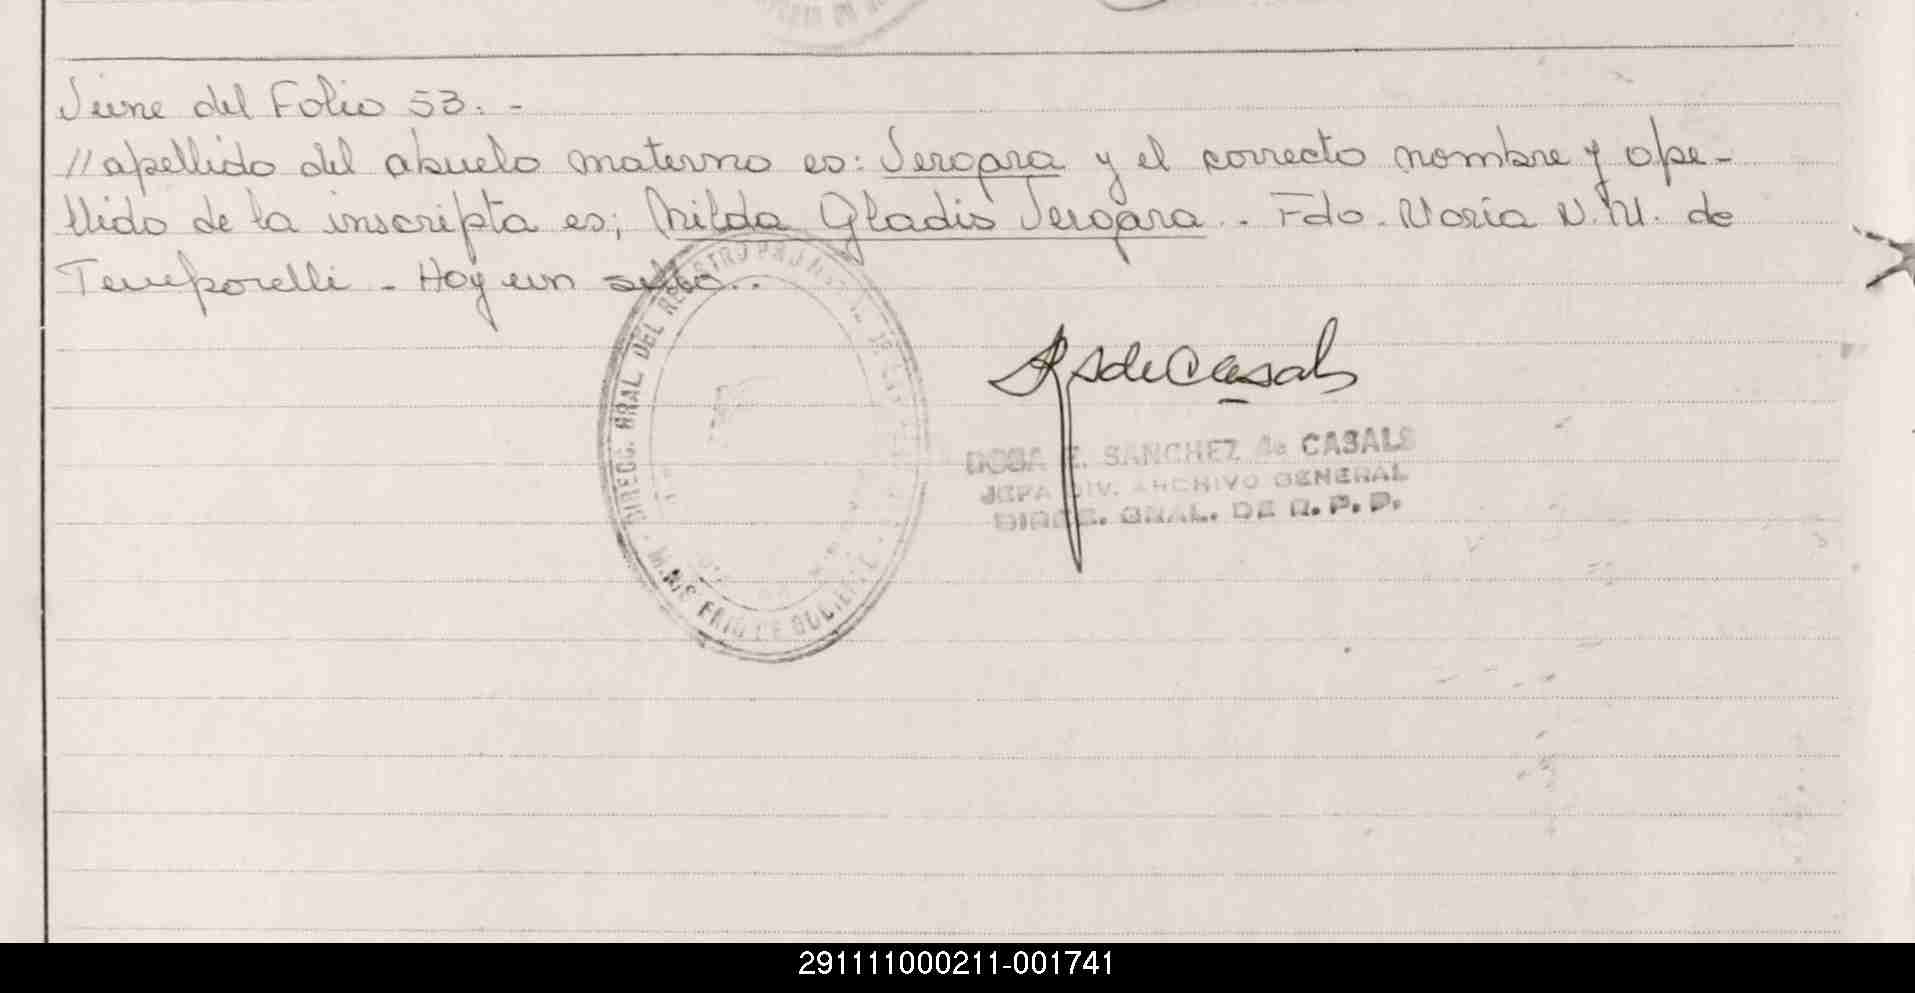 Viene del Folio 53. -
// apellido del abuelo materno es: Vergara y el correcto nombre y ape-
llido de la inscripta es; Nilda Gladis Vergara. Fdo. María N. M. de
Temporelli - Hay un sello..
DIRECC. GRAL. DEL REGISTRO
MINISTERIO DE
de Casals
ROSA E. SANCHEZ de CASALS
JEFA DIV. ARCHIVO GENERAL
DIREC. GRAL. DE R. P. P.
291111000211-001741